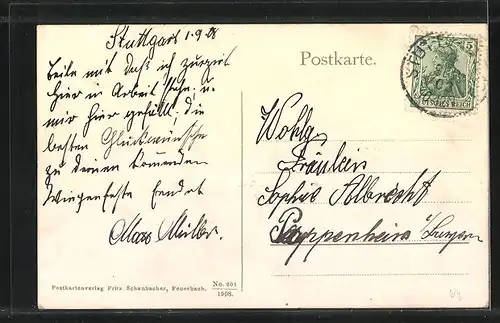 Stuttgart 1.9.08
Teile mit daß ich zurzeit
hier in Arbeit stehe, u.
mir hier gefällt, die
besten Glückwünsche
zu deinem kommenden
Wiegenfeste sendet
Max Müller.
Postkarte.
STUTTGART
5
DEUTSCHES REICH
Wohlg.
Fräulein
Sophie Albrecht
Pappenheim i/Bayern
Postkartenverlag Fritz Schanbacher, Feuerbach.
No. 201
1908.